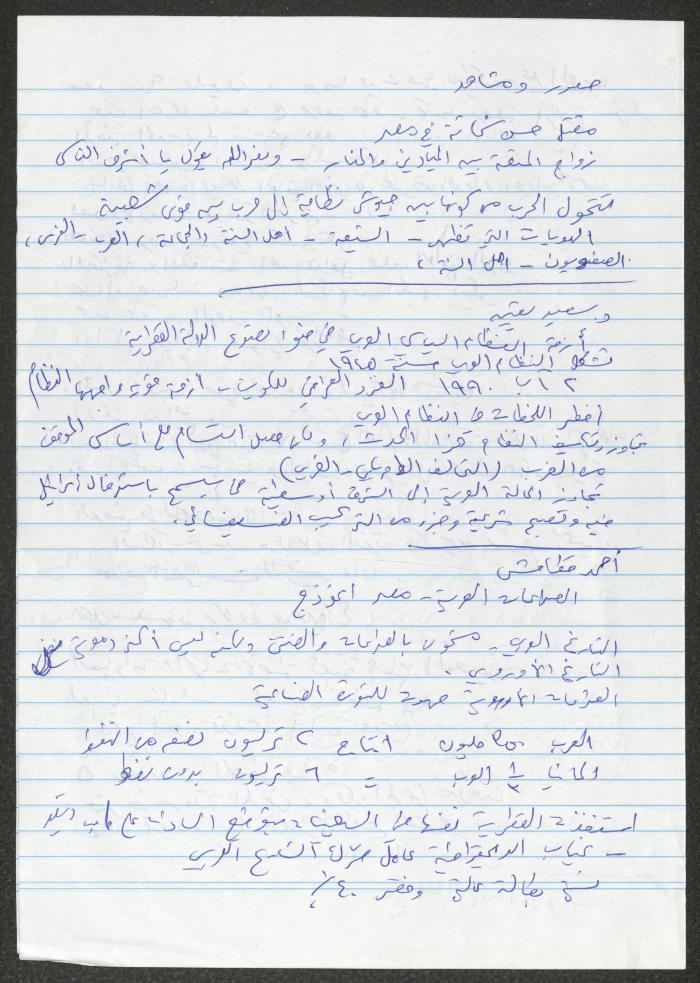 صور ومشاهد
مقتل حسن شحاتة في مصر
زواج المتعة بين الميادين والمنار - ونصرالله يقول يا أشرف الناس
تتحول الحرب من كونها بين جيوش نظامية إلى حرب بين قوى شعبية
الهويات التي تظهر - الشيعة - أهل السنة والجماعة، العرب - الفرس،
الصفويون - أهل السنة،
د. سعيد يقين
أزمة النظام السياسي العربي في ضوء تصدع الدولة القطرية
تشكل النظام العربي سنة ١٩٤٥
٢ آب ١٩٩٠ الغزو العراقي للكويت - أزمة قوية واجهها النظام
أخطر اللحظات في النظام العربي
تجاوز وتكييف النظام لهذا الحدث، وكان فصل انقسام على أساس الموقف
من الغرب (التحالف - الغربي)
تجاوز الحالة العربية إلى الشرق أوسطية مما يسمح باستدخال إسرائيل
فيه وتصبح شرعية وجزء من التركيب
أحمد قطامش
الصراعات العربية - مصر انموذج
التاريخ العربي مشحون بالصراعات والفتن ولكنه ليس أكثر دموية من
التاريخ الأوروبي.
الصراعات الأوروبية مهدت للثورة الصناعية
العرب ٣٥٠ مليون انتاج ٢ ترليون نصفه من النفط
ألمانيا ١/٣ العرب = ٦ ترليون بدون نفط
استنفذت القطرية نفسها من السبعينات بتوقيع السادات على كامب ديفيد
- غياب الديمقراطية عامل حرك الشارع العربي
نسبة بطالة عالية وفقر ٤٠٪